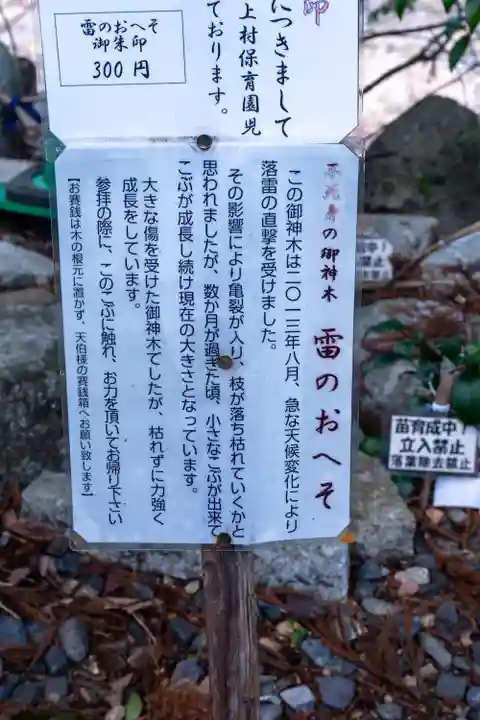 印
につきまして
上村保育園児
ております。
雷のおへそ
御朱印
300円
不死身の御神木 雷のおへそ
この御神木は二〇一三年八月、急な天候変化により
落雷の直撃を受けました。
その影響により亀裂が入り、枝が落ち枯れていくかと
思われましたが、数か月が過ぎた頃、小さなこぶが出来て
こぶが成長し続け現在の大きさとなっています。
大きな傷を受けた御神木でしたが、枯れずに力強く
成長をしています。
参拝の際に、このこぶに触れ、お力を頂いてお帰り下さい
【お賽銭は木の根元に置かず、天伯様の賽銭箱へお願い致します】
苗育成中
立入禁止
落葉除去禁止
成中!